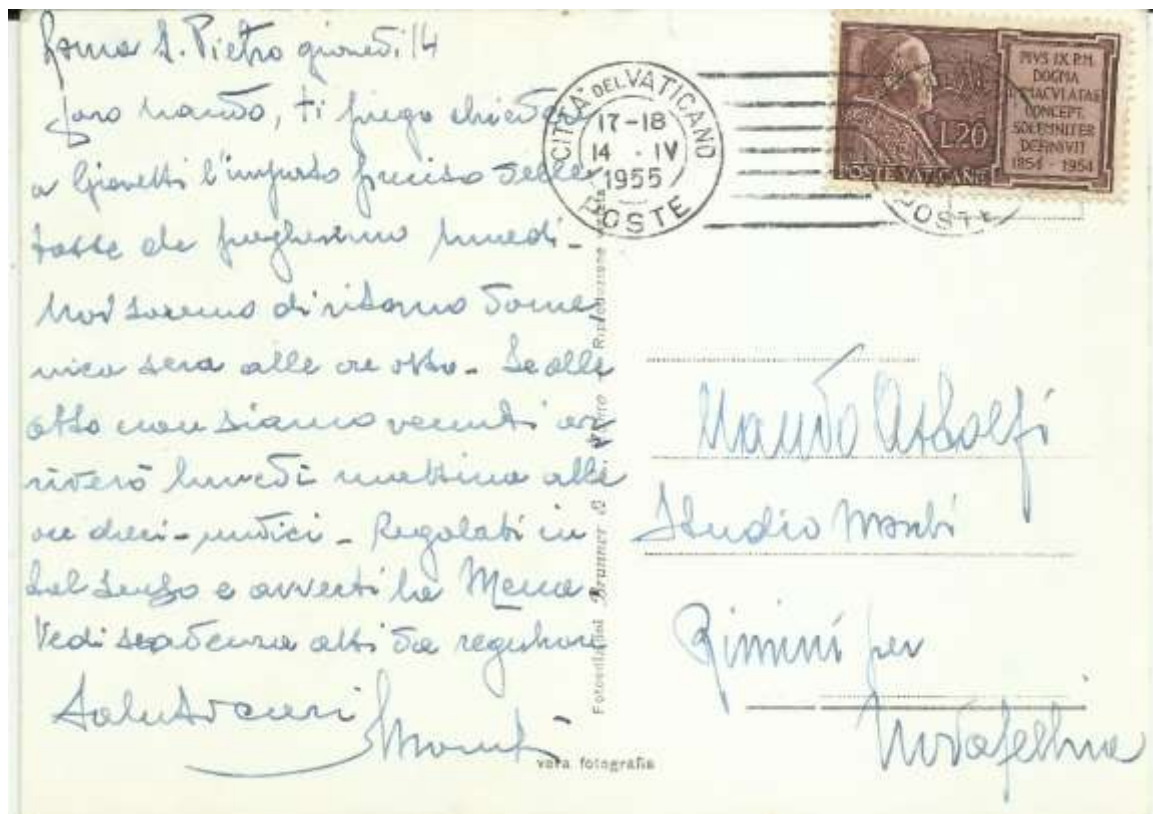 Roma S. Pietro giovedì 14
Caro Nando, ti prego chiedere
a Giovetti l'importo preciso delle
tasse che pagheremo lunedì -
Noi saremo di ritorno dome
nica sera alle ore otto - Se alle
otto non siamo venuti ar
riverò lunedì mattina alle
ore dieci-undici - Regolati in
tal senso e avverti la
Vedi scadenza atti da registrare
Saluti cari
Monti
CITTA' DEL VATICANO
17-18
14 · IV
1955
POSTE
PIVS IX P.M.
DOGMA
IMMACVLATAE
CONCEPT.
SOLEMNITER
DEFINIVIT
1854 - 1954
L.20
POSTE VATICANE
POSTE
Nando Astolfi
Studio Monti
Rimini per
Novafeltria
Brunner
vera fotografia